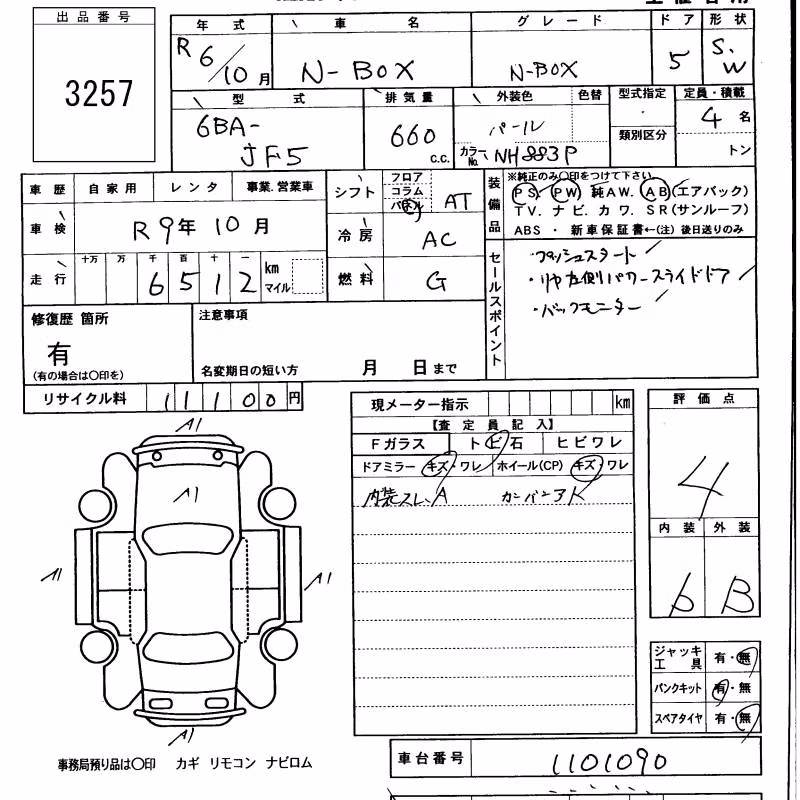 出品番号
3257
年式 車名 グレード ドア 形状
R 6/10月 N-BOX N-BOX 5 S.W
型式 排気量 外装色 色替 型式指定 定員・積載
6BA-JF5 660 c.c. パール カラーNo. NH883P 類別区分 4名 トン
車歴 自家用 レンタ 事業.営業車
車検 R9年10月
走行 十万 万 千 百 十 一 km マイル
6512
シフト フロア コラム AT
冷房 AC
燃料 G
装備品 ※純正のみ〇印をつけて下さい
PS. PW) 純AW. AB(エアバック)
TV. ナビ. カワ. SR(サンルーフ)
ABS ・ 新車保証書←(注)後日送りのみ
セールスポイント
・プッシュスタート
・リヤ左側パワースライドドア
・バックモニター
修復歴 箇所
有
(有の場合は〇印を)
注意事項
名変期日の短い方 月 日まで
リサイクル料 11100円
現メーター指示 km
【査定員記入】
Fガラス トビ石 ヒビワレ
ドアミラー キズ・ワレ ホイール(CP) キズ・ワレ
内装スレ.A
評価点
4
内装 外装
b B
A1
A1
A1
A1
A1
ジャッキ工具 有・無
パンクキット 有・無
スペアタイヤ 有・無
事務局預り品は〇印 カギ リモコン ナビロム
車台番号 1101090